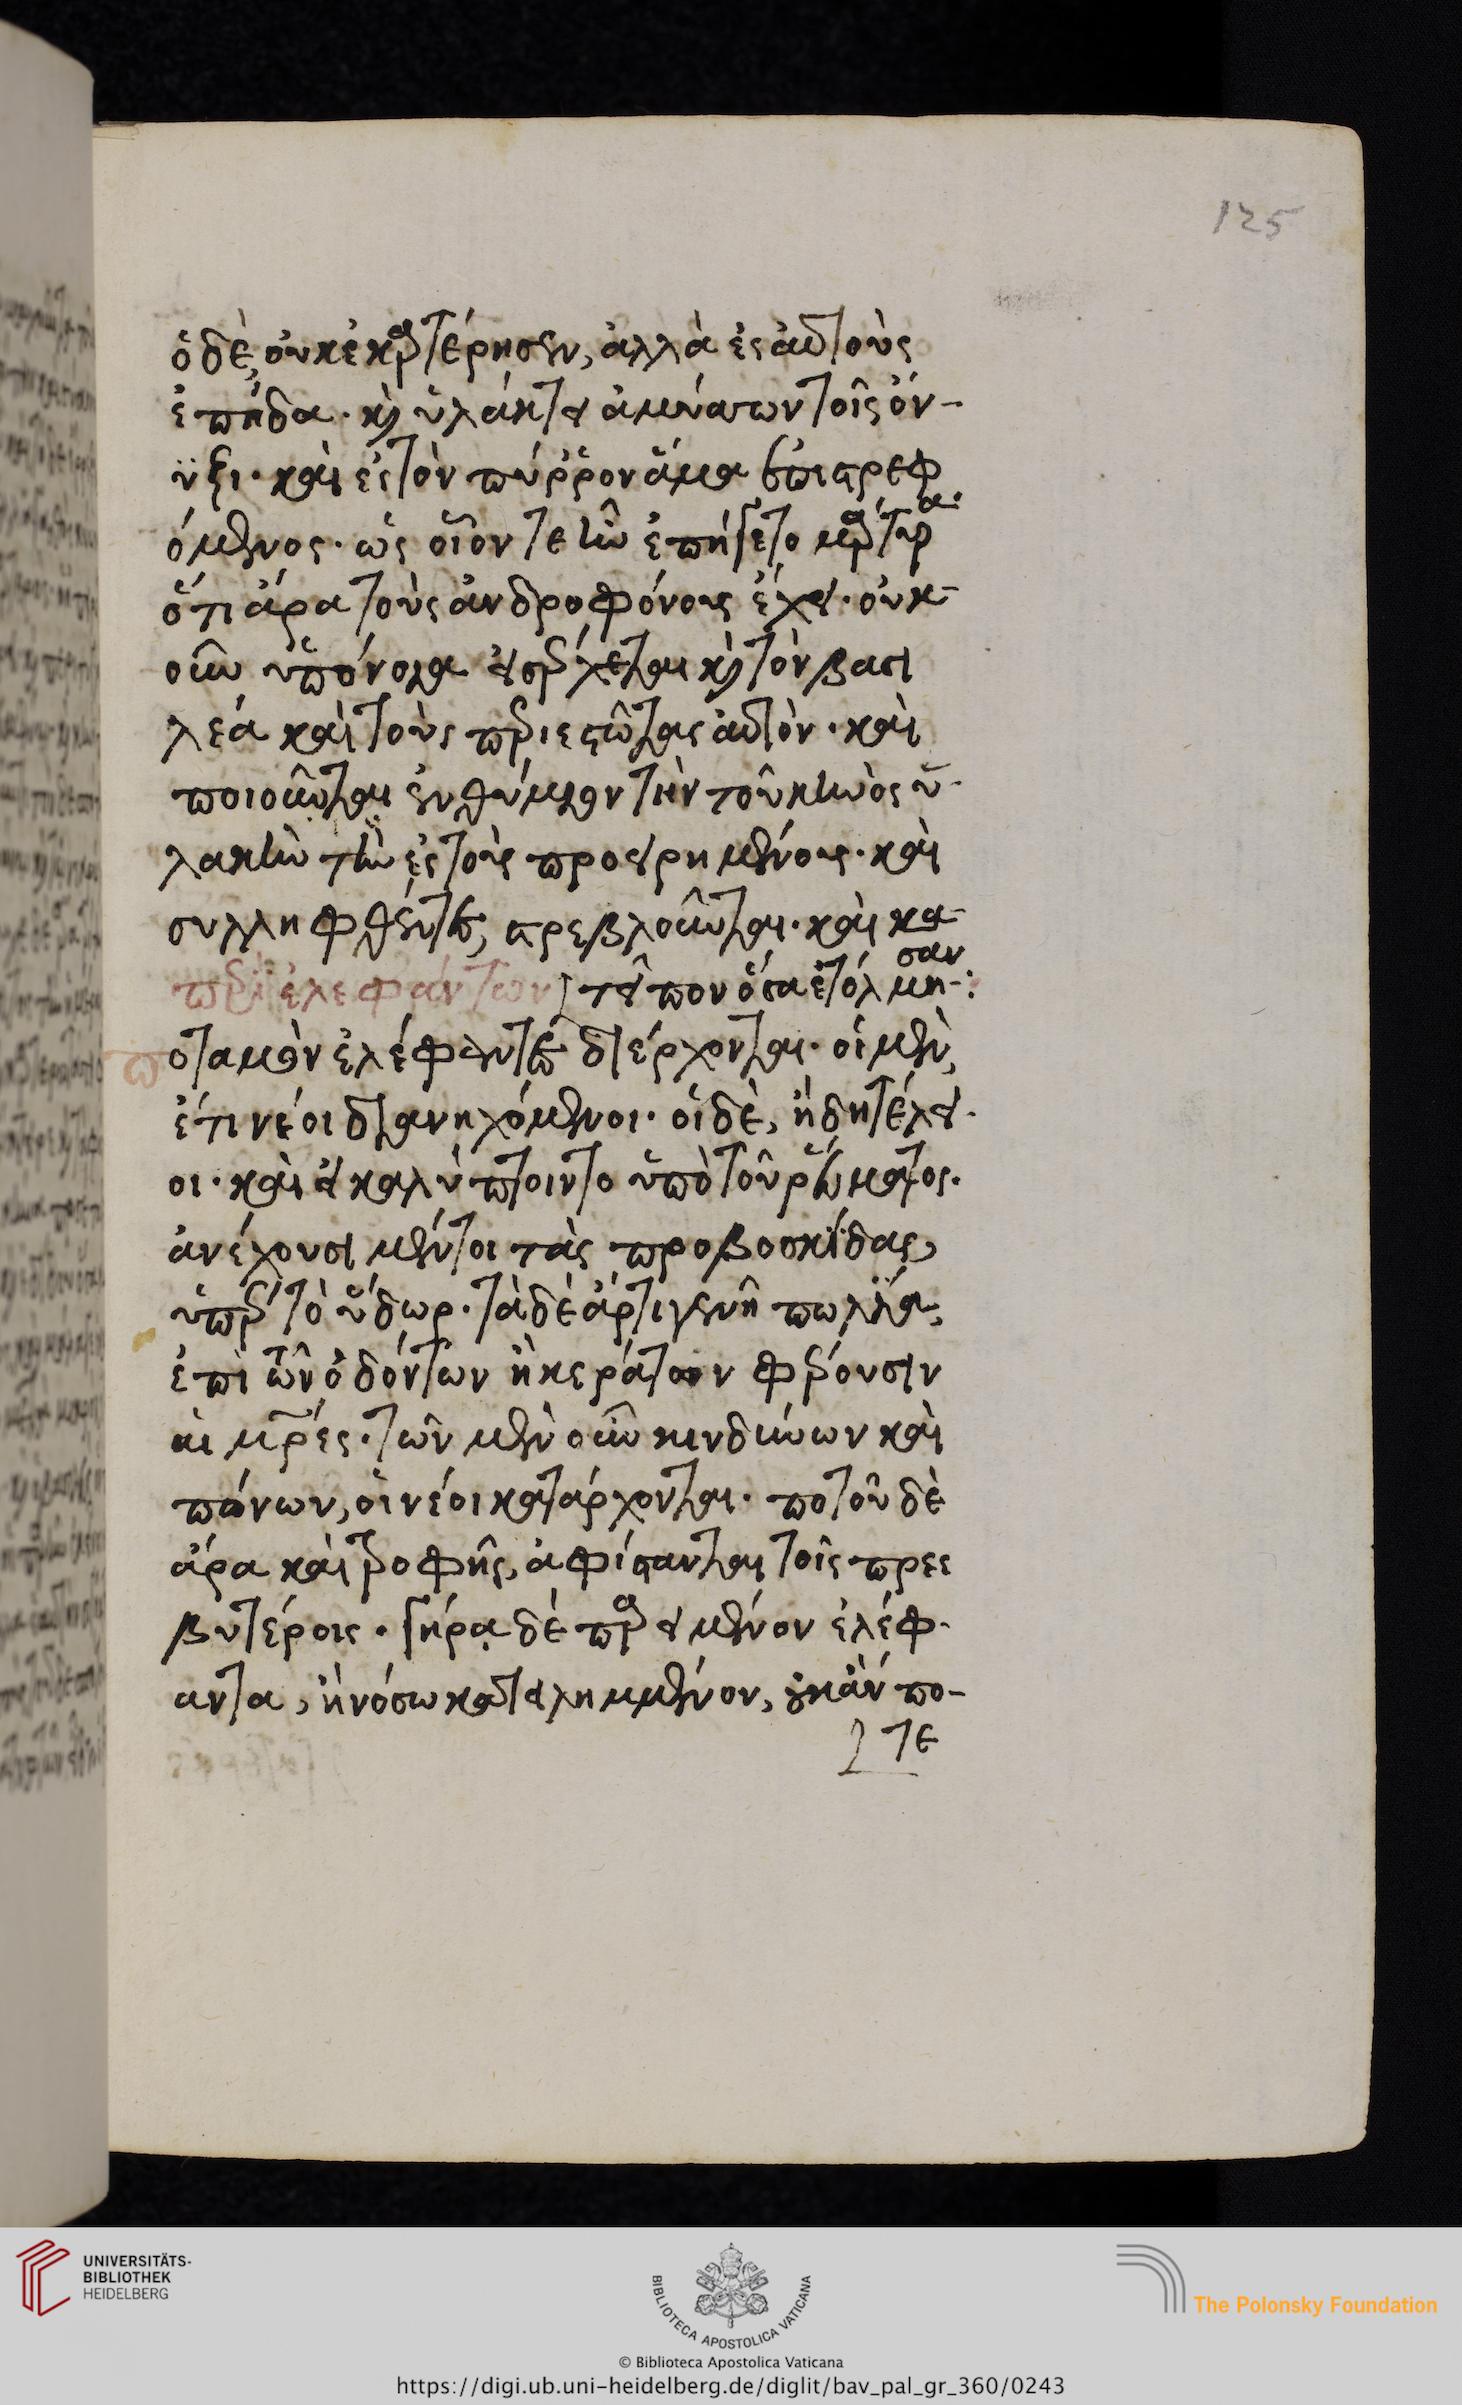 125
ὁ δὲ, οὐκ ἐκαρτέρησεν, ἀλλὰ ἐς αὐτοὺς
ἐπήδα. καὶ ὑλάκτει ἀμύττων τοῖς ὄν-
υξι. καὶ ἐς τὸν πύρρον ἅμα ἐπιστρεφ
όμενος. ὡς οἷόν τε ἦν ἐπήγετο μάρτυρα.
ὅτι ἄρα τοὺς ἀνδροφόνους ἔχει. οὐκ-
οῦν ὑπόνοια εἰσέρχεται καὶ τὸν βασι
λέα καὶ τοὺς περιεστῶτας αὐτὸν. καὶ
ποιοῦνται ἐνθύμιον τὴν τοῦ κυνὸς ὑ-
λακὴν τὴν ἐς τοὺς προειρημένους. καὶ
συλληφθέντες, στρεβλοῦνται. καὶ κα-
περὶ ἐλεφάντων τεῖπον ὅσα ἐτόλμησαν:
ποταμὸν ἐλέφαντες διέρχονται. οἱ μὲν,
ἔτι νέοι διανηχόμενοι. οἱ δὲ, ἤδη τέλει
οι. καὶ εἰ καλύπτοιντο ὑπὸ τοῦ ῥεύματος.
ἀνέχουσι μέντοι τὰς προβοσκίδας,
ὑπὲρ τὸ ὕδωρ. τὰ δὲ ἀρτιγενῆ πωλία,
ἐπὶ τῶν ὀδόντων ἢ κεράτων φέρουσιν
αἱ μητέρες. τῶν μὲν οὖν κινδύνων καὶ
πόνων, οἱ νέοι κατάρχονται. ποτοῦ δὲ
ἄρα καὶ τροφῆς, ἀφίστανται τοῖς πρεσ
βυτέροις. γήρᾳ δὲ παρειμένον ἐλέφ-
αντα, ἢ νόσω κατειλημμένον, οὐκ ἄν πο-
τε
UNIVERSITÄTS-
BIBLIOTHEK
HEIDELBERG
BIBLIOTECA APOSTOLICA VATICANA
The Polonsky Foundation
© Biblioteca Apostolica Vaticana
https://digi.ub.uni-heidelberg.de/diglit/bav_pal_gr_360/0243